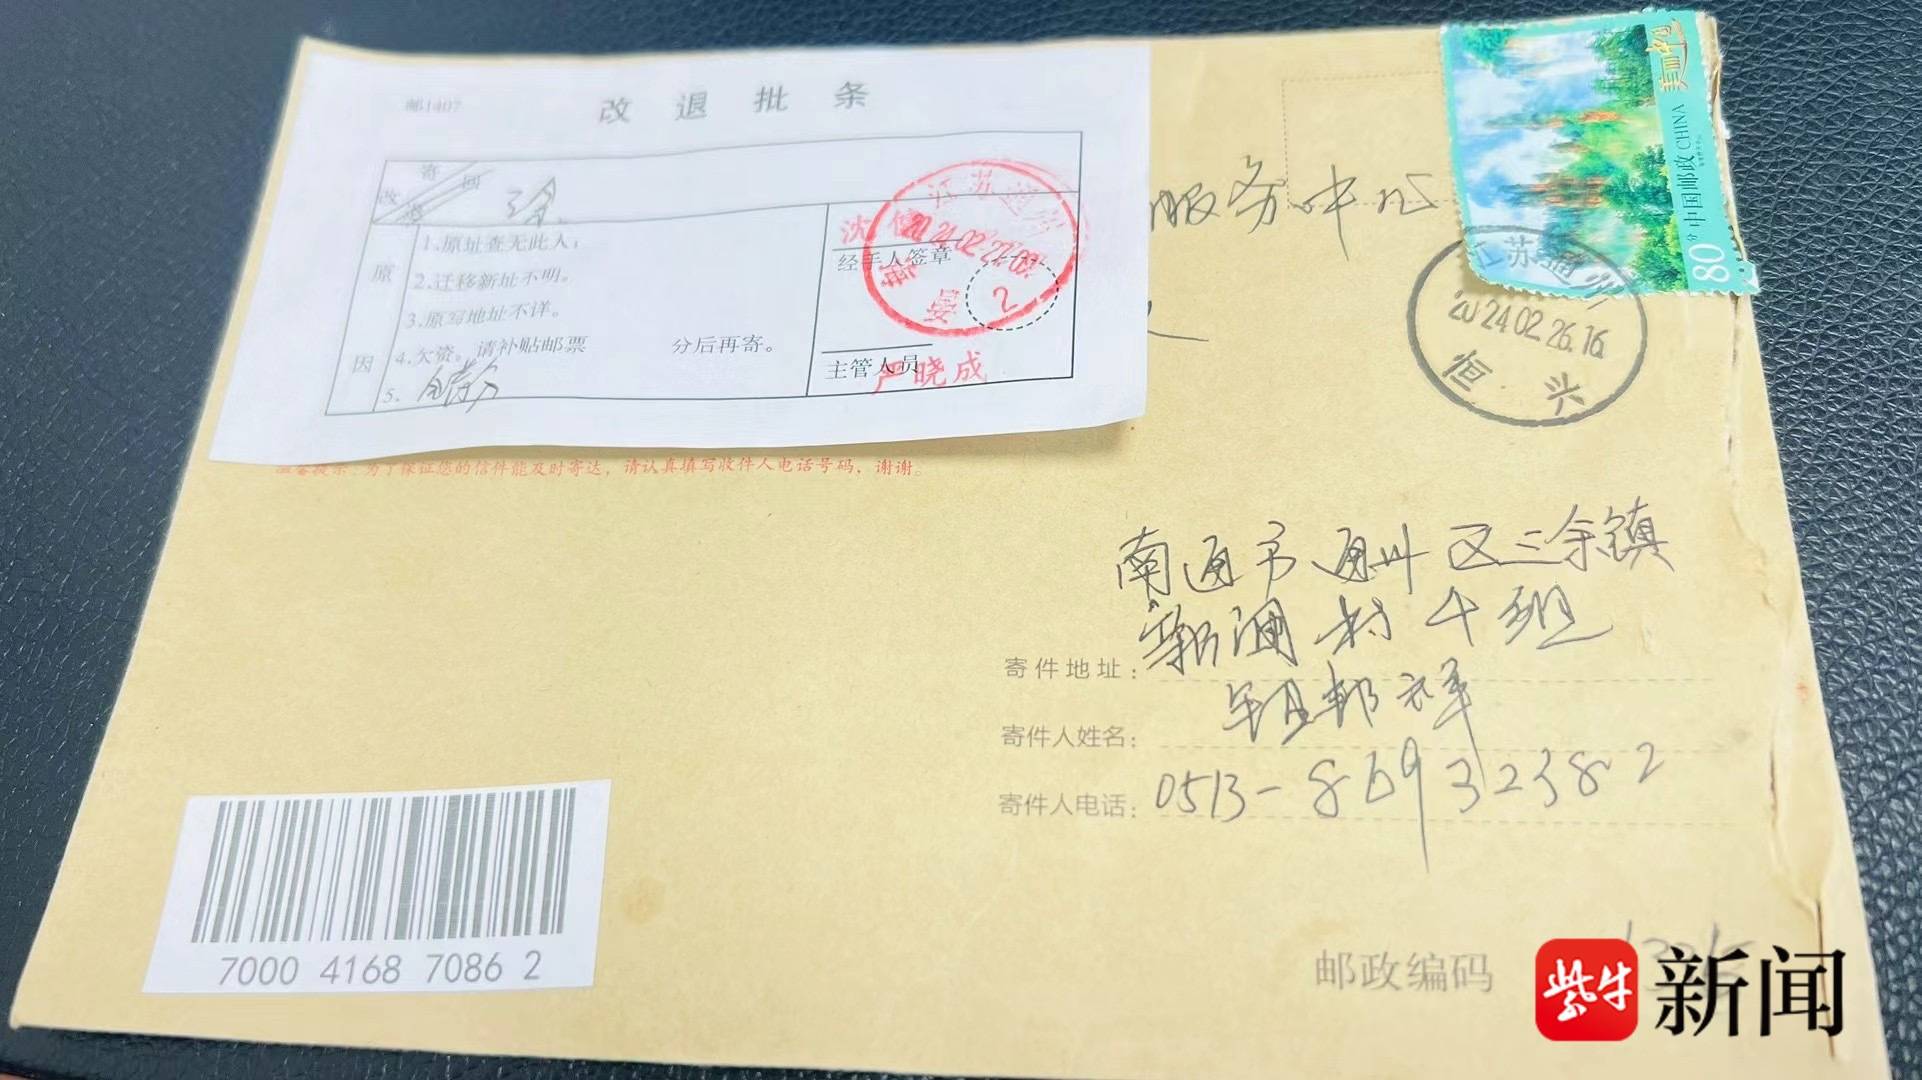 邮1407
改退批条
寄回
改退
三余
原因
1.原址查无此人;
2.迁移新址不明。
3.原写地址不详。
4.欠资。请补贴邮票 分后再寄。
5.
经手人签章
主管人员
严晓成
江苏通州
2024.02.27.09
2
服务中心
美丽中国
中国邮政 CHINA
80分
江苏通州
2024.02.26.16
恒兴
温馨提示:为了保证您的信件能及时寄达,请认真填写收件人电话号码,谢谢。
南通市通州区三余镇
寄件地址:
寄件人姓名:
寄件人电话: 0513-86932382
7000 4168 7086 2
邮政编码
紫牛新闻